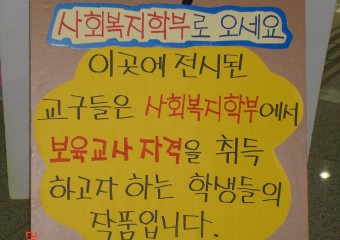 사회복지학부로 오세요
이곳에 전시된
교구들은 사회복지학부에서
보육교사 자격을 취득
하고자 하는 학생들의
작품입니다.